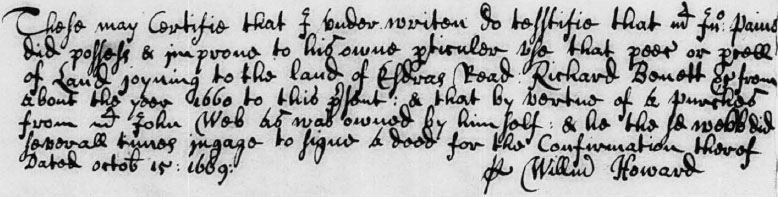 These may Certifie that I under writen do testtifie that mr Jno: Pains
did possess & improve to his owne pticuler Use that peec or pcell
of Land joyning to the land of Esdras Read Richard Benett & from
about the yeer 1660 to this psent: & that by vertue of a purches
from mr John Web as was owned by him self: & he the sd webb did
severall times ingage to signe a deed for the Confirmation therof
Dated octob 15: 1689: p Willm Howard